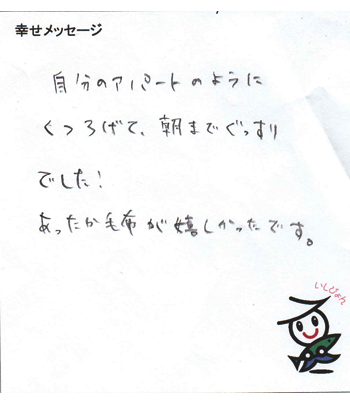 幸せメッセージ
自分のアパートのように
くつろげて、朝までぐっすり
でした!
あったか毛布が嬉しかったです。
いしぴょん